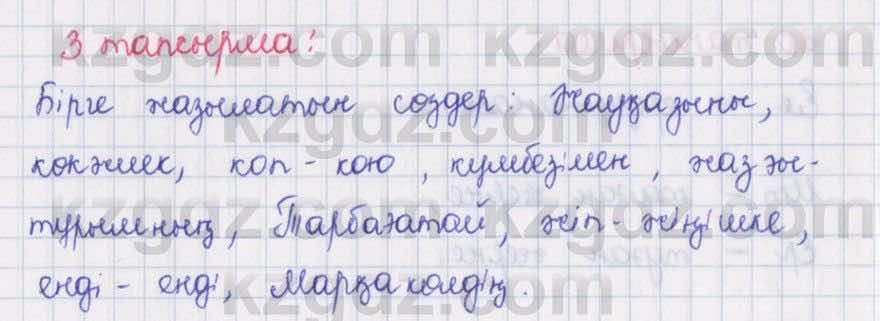 3 тапсырма:
Бірге жазылатын сөздер: Жауқазыны,
көкжиек, көп-көю, күмбезімен, жаз жы-
турымның, Тарбағатай, жіп-жіңішке,
енді-енді, Марқакөлдің.
kzgdz.com kzgdz.com